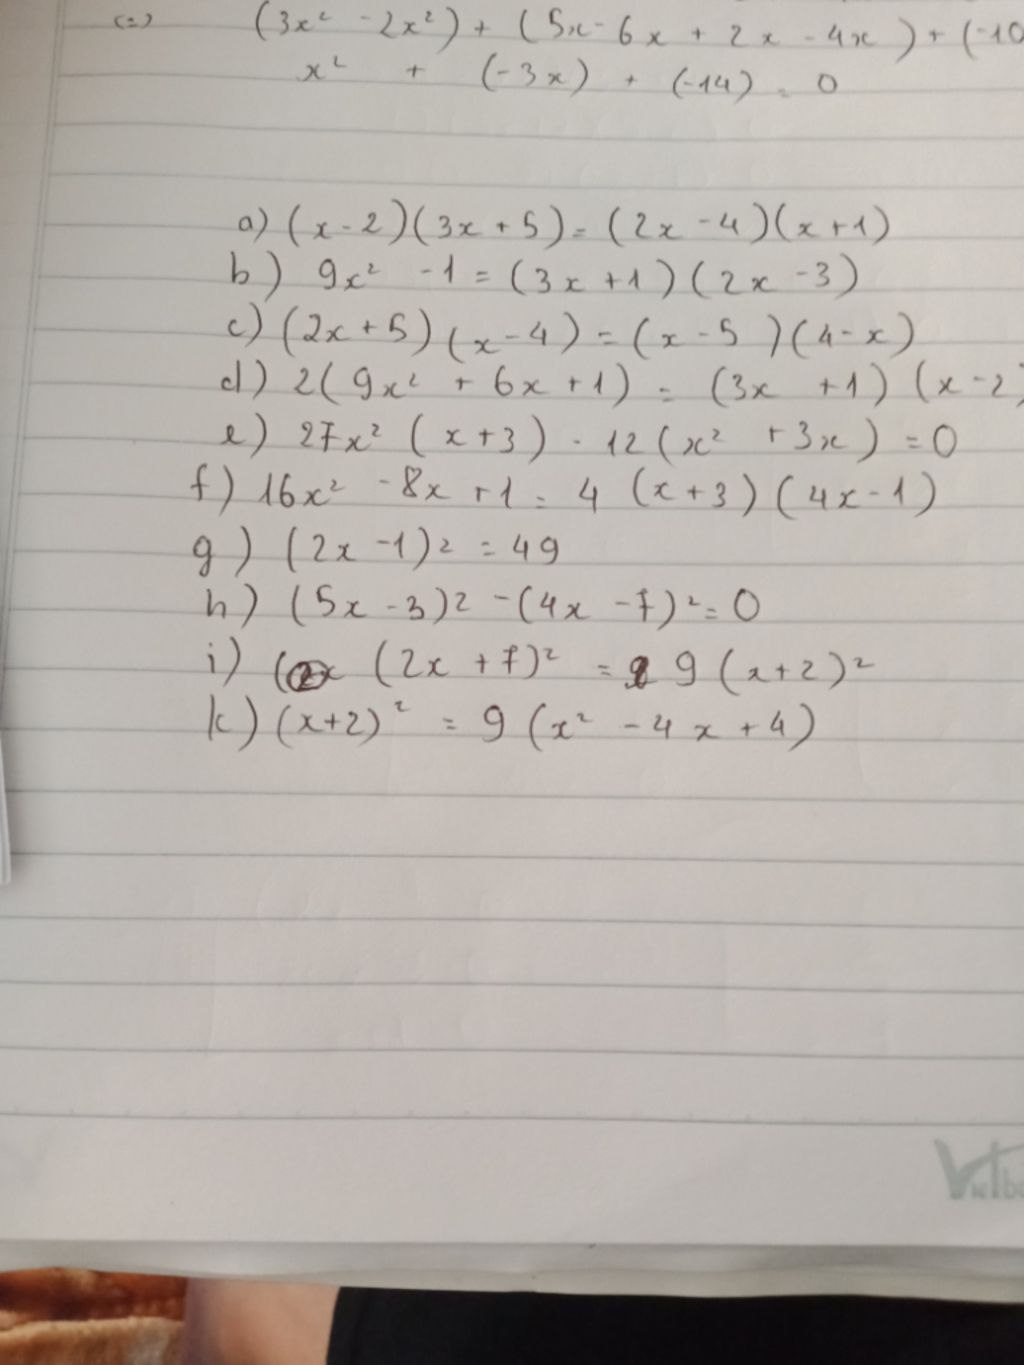 (=) (3x² - 2x²) + (5x - 6x + 2x - 4x) + (-10
x² + (-3x) + (-14) = 0
a) (x - 2)(3x + 5) = (2x - 4)(x + 1)
b) 9x² - 1 = (3x + 1)(2x - 3)
c) (2x + 5)(x - 4) = (x - 5)(4 - x)
d) 2(9x² + 6x + 1) = (3x + 1)(x - 2)
e) 27x² (x + 3) - 12(x² + 3x) = 0
f) 16x² - 8x + 1 = 4 (x + 3)(4x - 1)
g) (2x - 1)² = 49
h) (5x - 3)² - (4x - 7)² = 0
i) (2x + 7)² = 9 (x + 2)²
k) (x + 2)² = 9 (x² - 4x + 4)